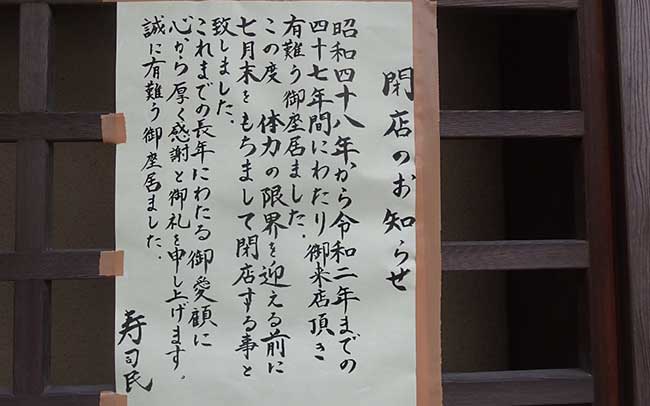 閉店のお知らせ
昭和四十八年から令和二年までの
四十七年間にわたり御来店頂き
有難う御座居ました。
この度 体力の限界を迎える前に
七月末をもちまして閉店する事と
致しました。
これまでの長年にわたる御愛顧に
心から厚く感謝と御礼を申し上げます。
誠に有難う御座居ました。
寿司民